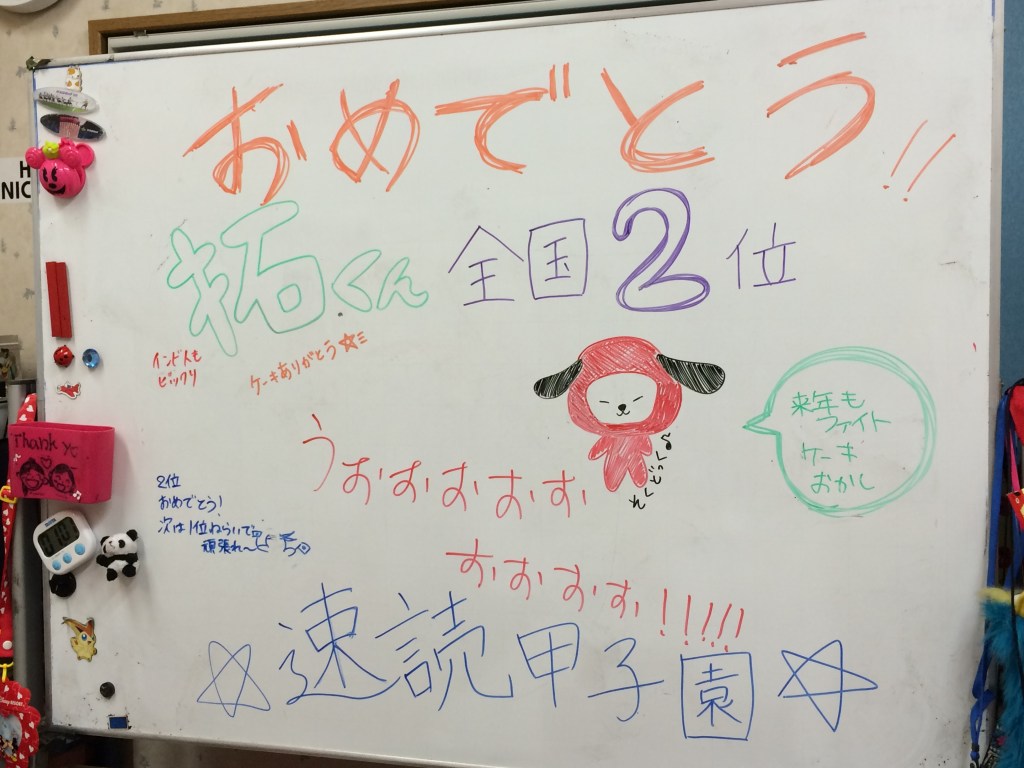 おめでとう!!
拓くん 全国2位
インド人も
ビックリ
ケーキありがとう☆
来年も
ファイト
ケーキ
おかし
うおおおおお
2位
おめでとう!
次は1位ねらいで
頑張れ〜
おおおお!!!!!
☆速読甲子園☆
Thank yo